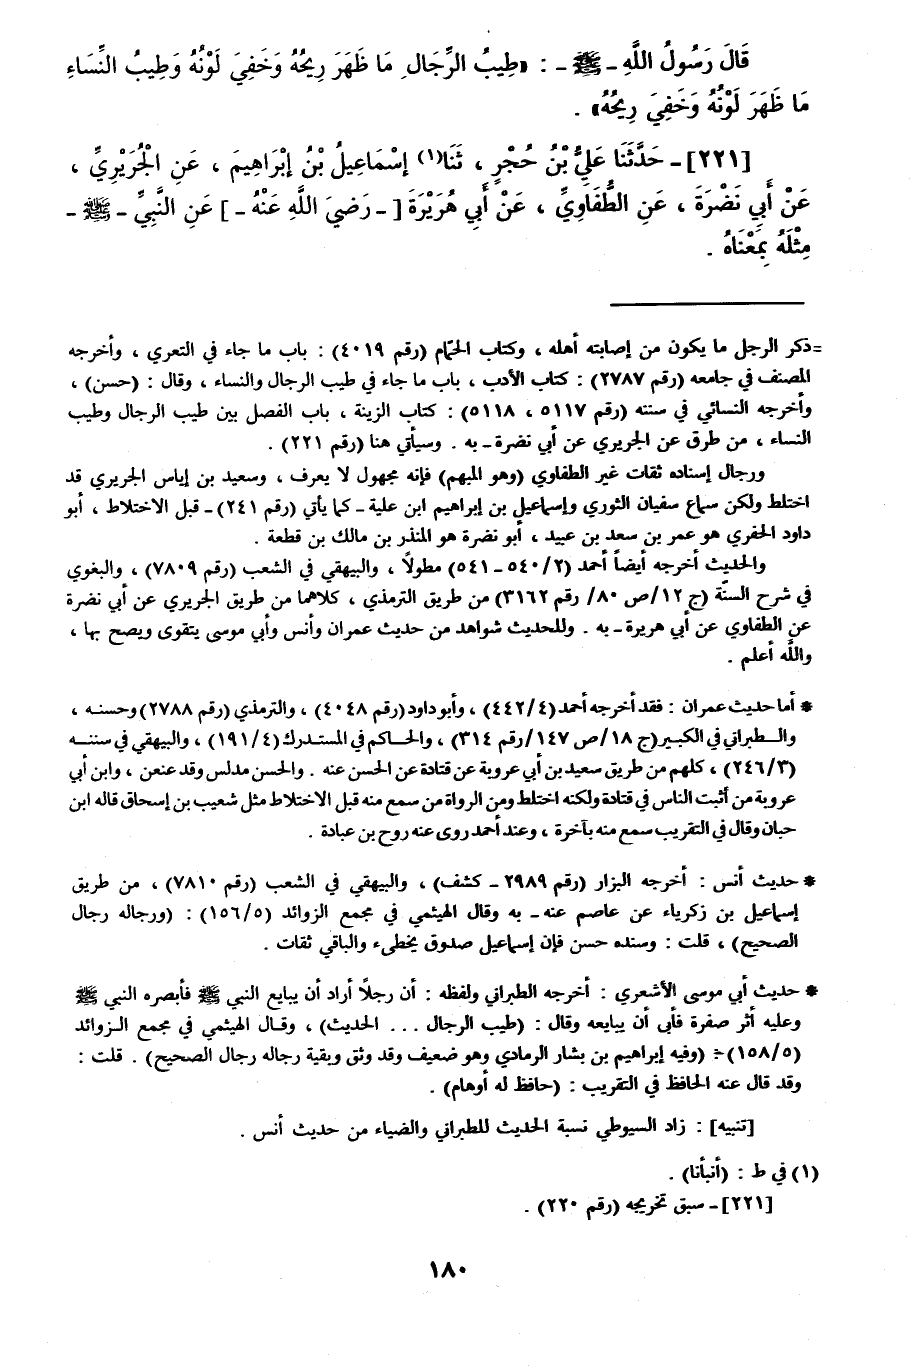 قَالَ رَسُولُ اللَّهِ - ﷺ - : «طِيبُ الرِّجَالِ مَا ظَهَرَ رِيحُهُ وَخَفِيَ لَوْنُهُ وَطِيبُ النِّسَاءِ
مَا ظَهَرَ لَوْنُهُ وَخَفِيَ رِيحُهُ» .
[٢٢١] - حَدَّثَنَا عَلِيُّ بْنُ حُجْرٍ ، ثَنَا(١) إِسْمَاعِيلُ بْنُ إِبْرَاهِيمَ ، عَنِ الْجُرَيْرِيِّ ،
عَنْ أَبِي نَضْرَةَ ، عَنِ الطُّفَاوِيِّ ، عَنْ أَبِي هُرَيْرَةَ [ - رَضِيَ اللَّهُ عَنْهُ - ] عَنِ النَّبِيِّ - ﷺ -
مِثْلَهُ بِمَعْنَاهُ .
=ذكر الرجل ما يكون من إصابته أهله ، وكتاب الحمّام (رقم ٤٠١٩) : باب ما جاء في التعري ، وأخرجه
المصنف في جامعه (رقم ٢٧٨٧) : كتاب الأدب ، باب ما جاء في طيب الرجال والنساء ، وقال : (حسن) ،
وأخرجه النسائي في سننه (رقم ٥١١٧ ، ٥١١٨) : كتاب الزينة ، باب الفصل بين طيب الرجال وطيب
النساء ، من طرق عن الجريري عن أبي نضرة - به . وسيأتي هنا (رقم ٢٢١) .
ورجال إسناده ثقات غير الطفاوي (وهو المبهم) فإنه مجهول لا يعرف ، وسعيد بن إياس الجريري قد
اختلط ولكن سماع سفيان الثوري وإسماعيل بن إبراهيم ابن علية - كما يأتي (رقم ٢٤١) - قبل الاختلاط ، أبو
داود الحفري هو عمر بن سعد بن عبيد ، أبو نضرة هو المنذر بن مالك بن قطعة .
والحديث أخرجه أيضاً أحمد (٢/ ٥٤٠ - ٥٤١) مطولاً ، والبيهقي في الشعب (رقم ٧٨٠٩) ، والبغوي
في شرح السنّة (ج ١٢/ص ٨٠/ رقم ٣١٦٢) من طريق الترمذي ، كلاهما من طريق الجريري عن أبي نضرة
عن الطفاوي عن أبي هريرة - به . وللحديث شواهد من حديث عمران وأنس وأبي موسى يتقوى ويصح بها ،
واللَّه أعلم .
* أما حديث عمران : فقد أخرجه أحمد (٤/ ٤٤٢) ، وأبو داود (رقم ٤٠٤٨) ، والترمذي (رقم ٢٧٨٨) وحسنه ،
والطبراني في الكبير (ج ١٨/ص ١٤٧/رقم ٣١٤) ، والحاكم في المستدرك (٤/ ١٩١) ، والبيهقي في سننه
(٣/ ٢٤٦) ، كلهم من طريق سعيد بن أبي عروبة عن قتادة عن الحسن عنه . والحسن مدلس وقد عنعن ، وابن أبي
عروبة من أثبت الناس في قتادة ولكنه اختلط ومن الرواة من سمع منه قبل الاختلاط مثل شعيب بن إسحاق قاله ابن
حبان وقال في التقريب سمع منه بآخرة ، وعند أحمد روى عنه روح بن عبادة .
* حديث أنس : أخرجه البزار (رقم ٢٩٨٩ - كشف) ، والبيهقي في الشعب (رقم ٧٨١٠) ، من طريق
إسماعيل بن زكرياء عن عاصم عنه - به وقال الهيثمي في مجمع الزوائد (٥/ ١٥٦) : (ورجاله رجال
الصحيح) ، قلت : وسنده حسن فإن إسماعيل صدوق يخطىء والباقي ثقات .
* حديث أبي موسى الأشعري : أخرجه الطبراني ولفظه : أن رجلاً أراد أن يبايع النبي ﷺ فأبصره النبي ﷺ
وعليه أثر صفرة فأبى أن يبايعه وقال : (طيب الرجال ... الحديث) ، وقال الهيثمي في مجمع الزوائد
(٥/ ١٥٨) - : (وفيه إبراهيم بن بشار الرمادي وهو ضعيف وقد وثق وبقية رجاله رجال الصحيح) . قلت :
وقد قال عنه الحافظ في التقريب : (حافظ له أوهام) .
[تنبيه] : زاد السيوطي نسبة الحديث للطبراني والضياء من حديث أنس .
(١) في ط : (أنبأنا) .
[٢٢١] - سبق تخريجه (رقم ٢٢٠) .
١٨٠